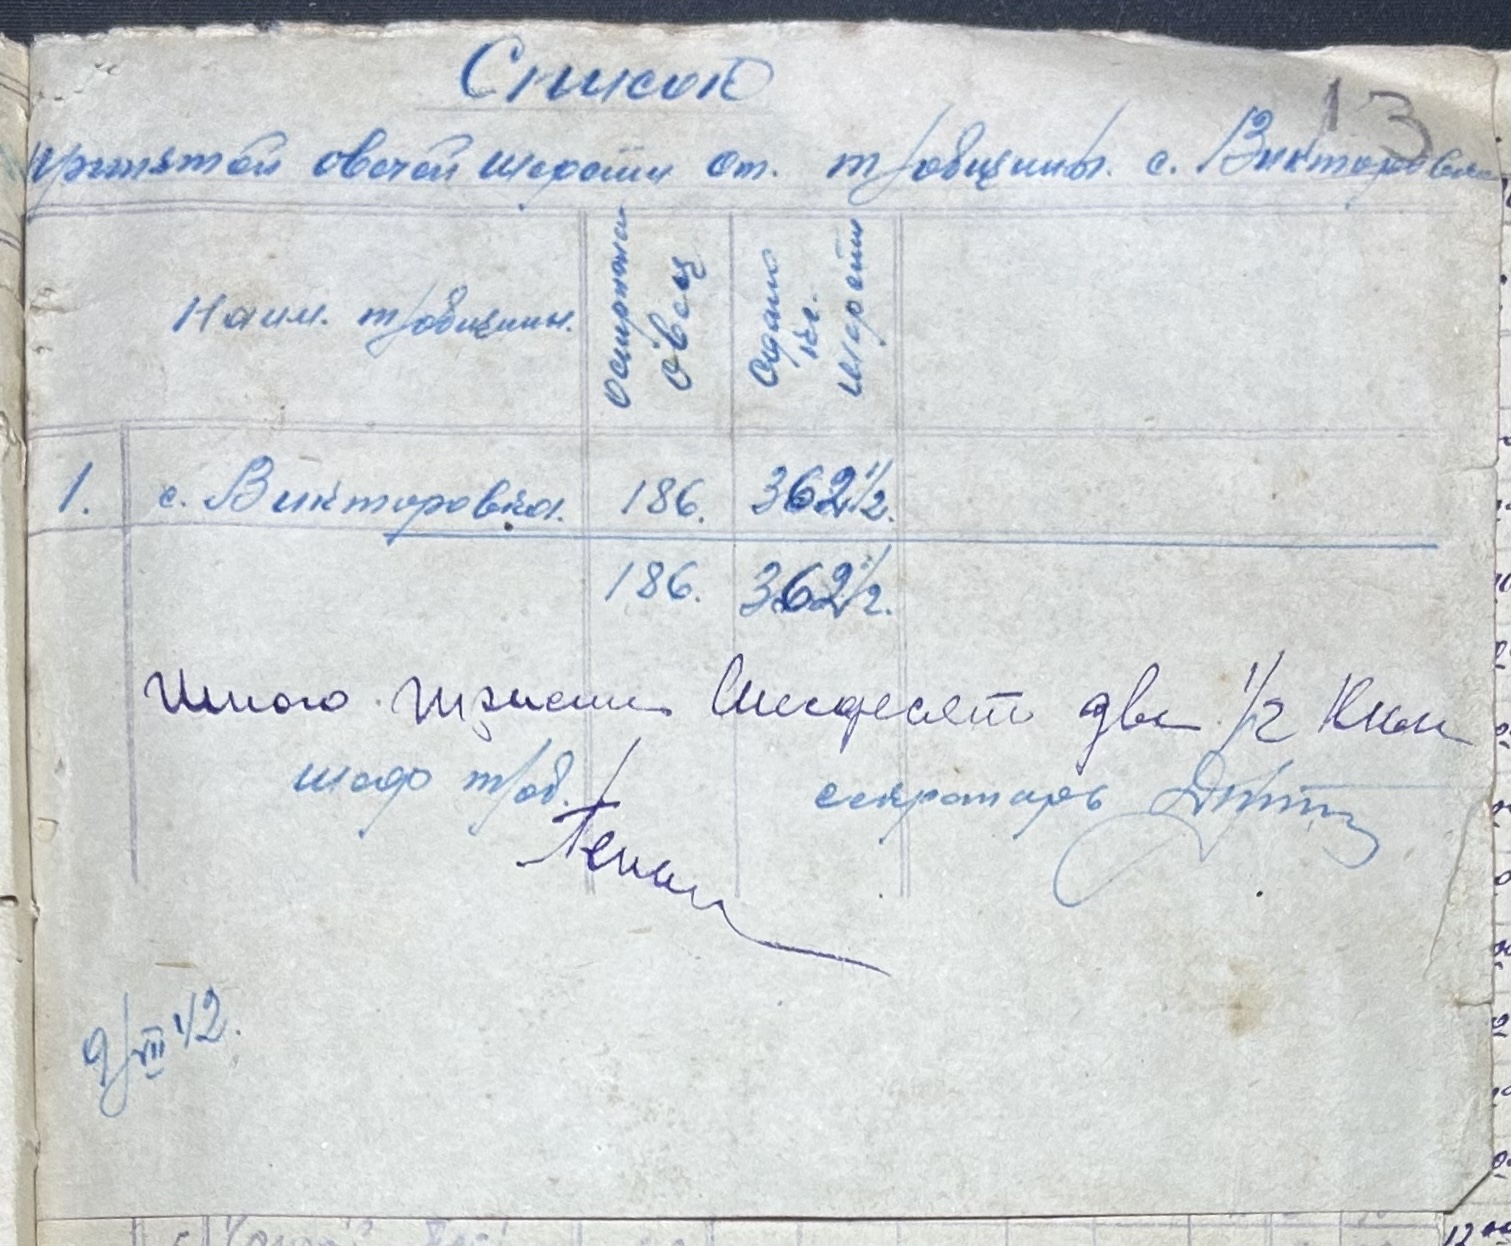 Список
13
принятой овечей шерсти от т/общины. с. Викторовка
Наим. т/общины.
Острижено
овец
Сдано
кг.
шерсти
1. с. Викторовка. 186. 362 1/2.
186. 362 1/2.
Итого триста шесдесят два 1/2 Кил
шеф т/об. секретарь
9/VII 42.